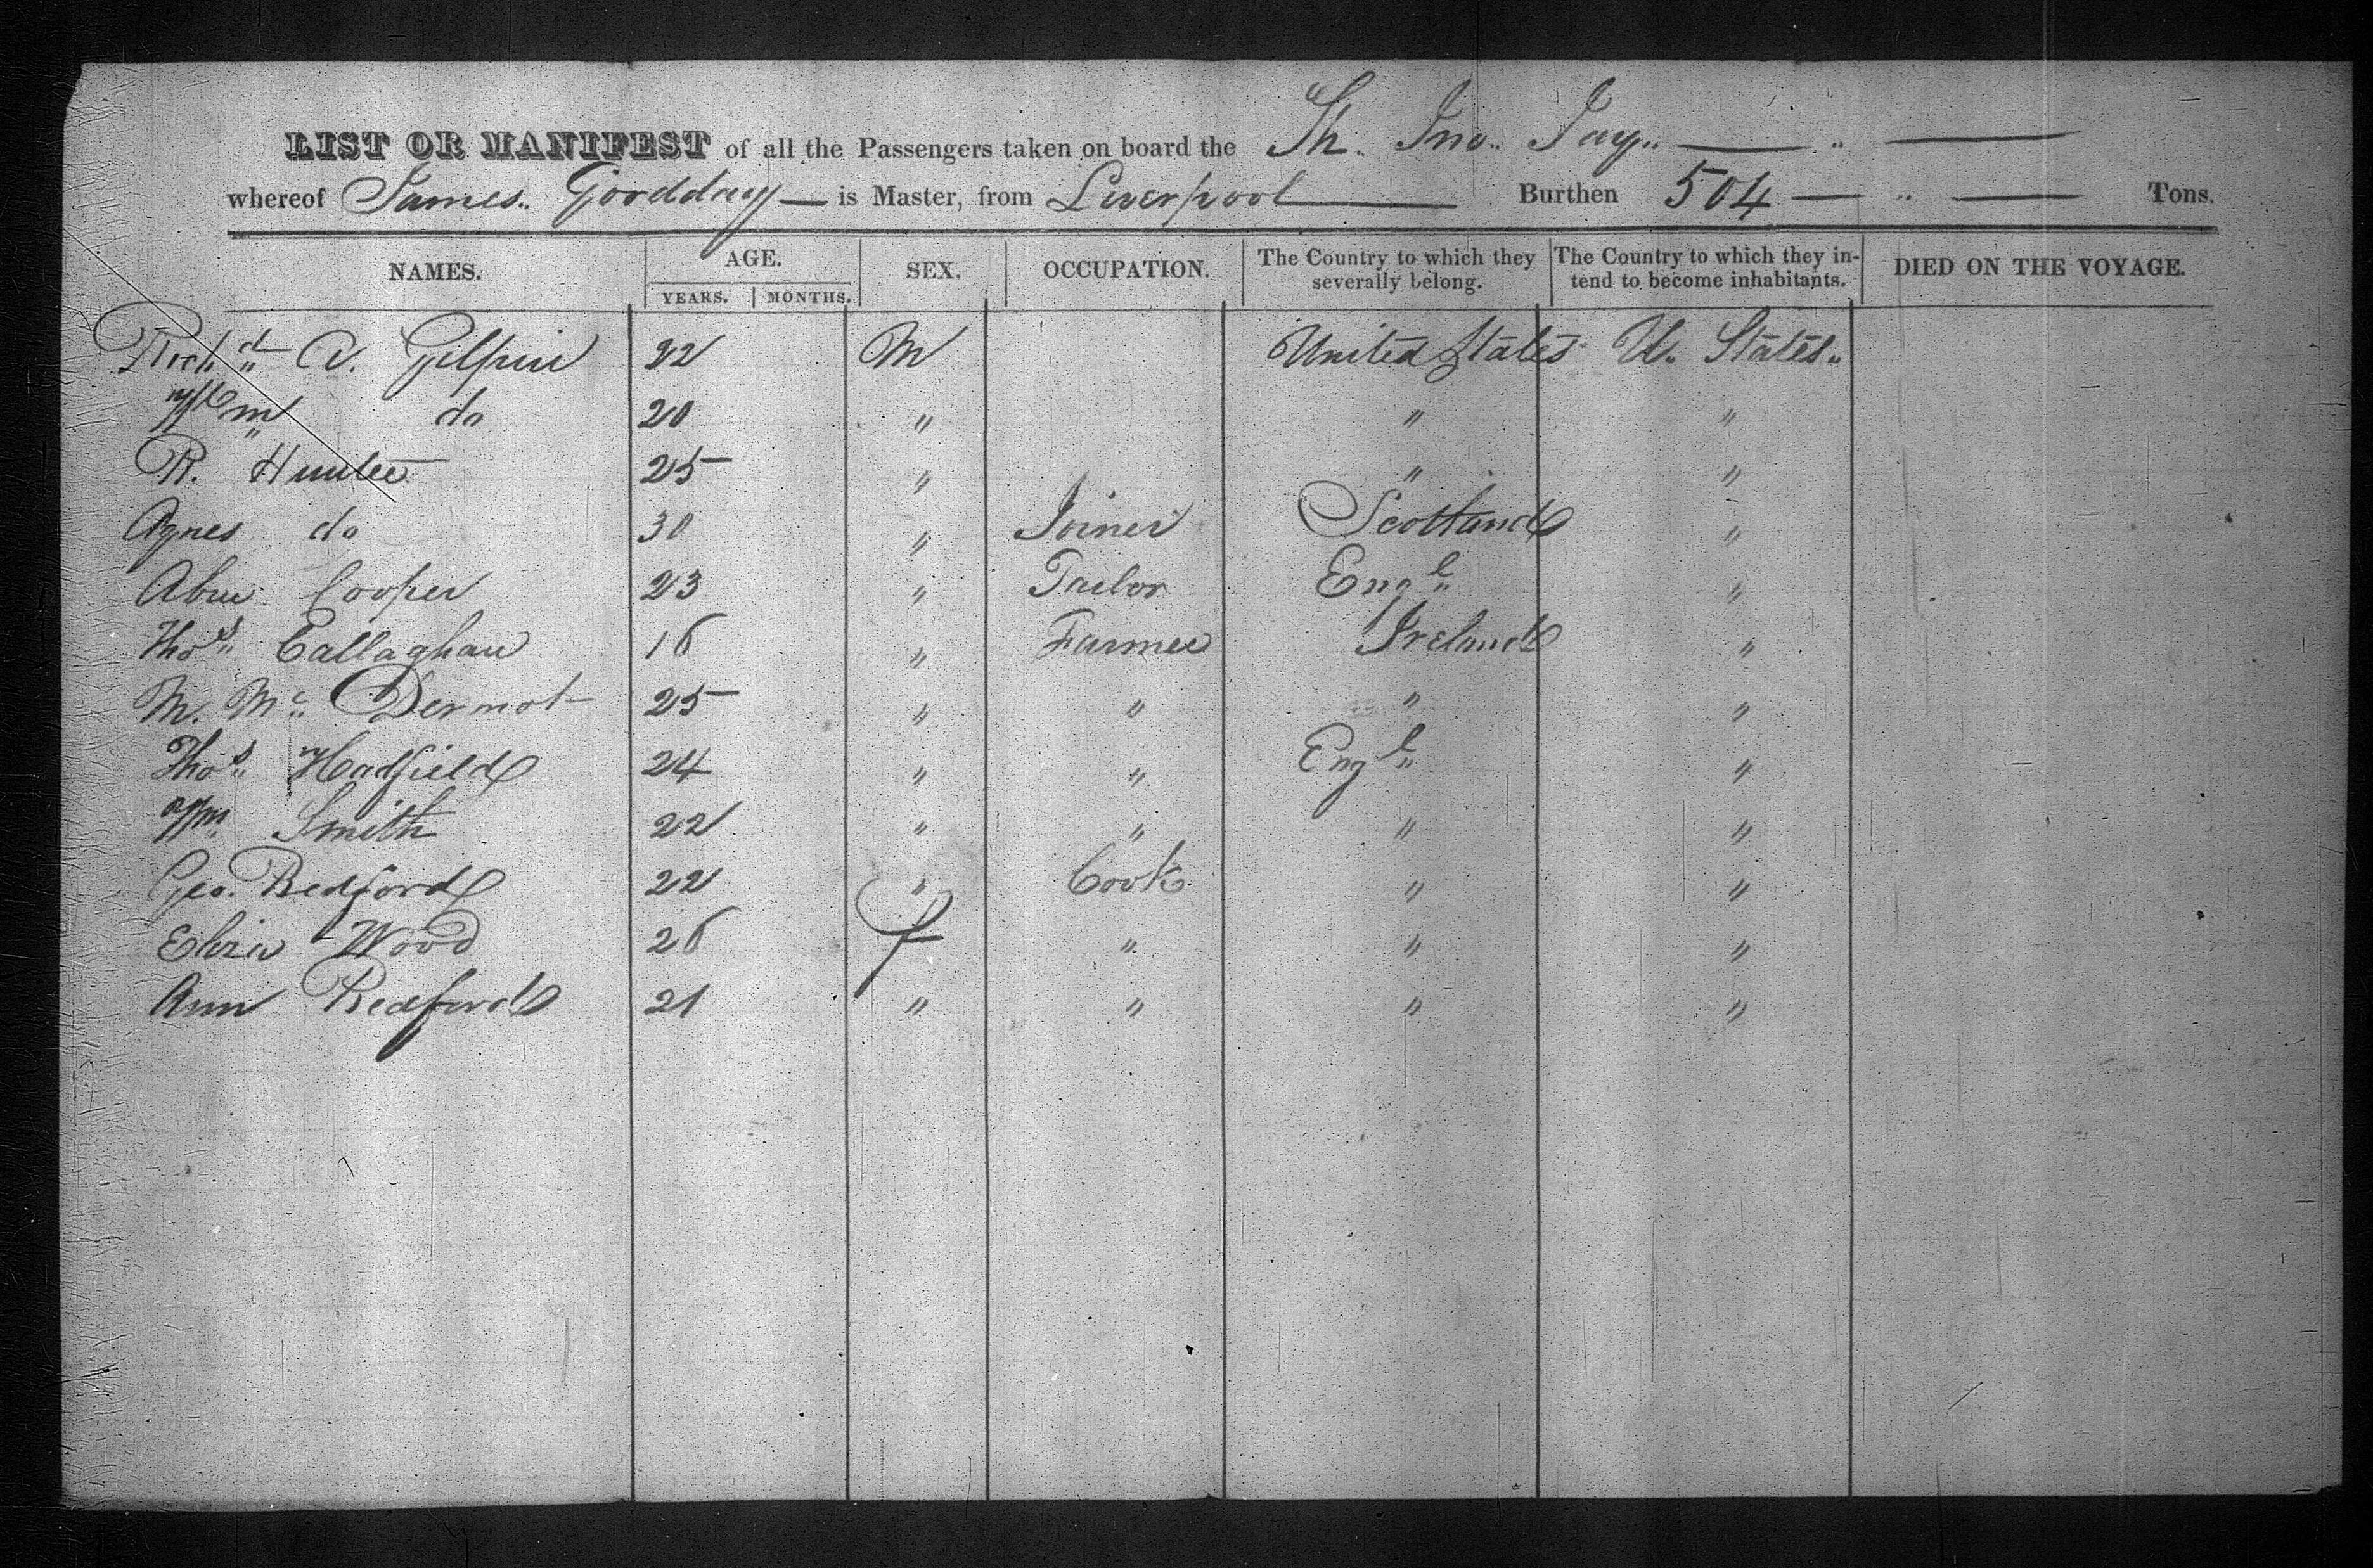 LIST OR MANIFEST of all the Passengers taken on board the Sh. Jno. Jay
whereof James Gordday is Master, from Liverpool Burthen 504 Tons.
NAMES. AGE. SEX. OCCUPATION. The Country to which they severally belong. The Country to which they intend to become inhabitants. DIED ON THE VOYAGE.
YEARS. MONTHS.
Richd. A. Gilpin 22 M United States U. States
Wm do 20 " " "
R. Hunter 25 " " "
Agnes do 30 " Joiner Scotland "
Cooper 23 " Tailor Engl "
Thos. Callaghan 16 " Farmer Ireland "
M. Mc Dermot 25 " " " "
Thos. Hadfield 24 " " Engl "
Wm Smith 22 " " " "
Geo. Redford 22 " Cook " "
Eliza Wood 26 f " " "
Ann Redford 21 " " " "